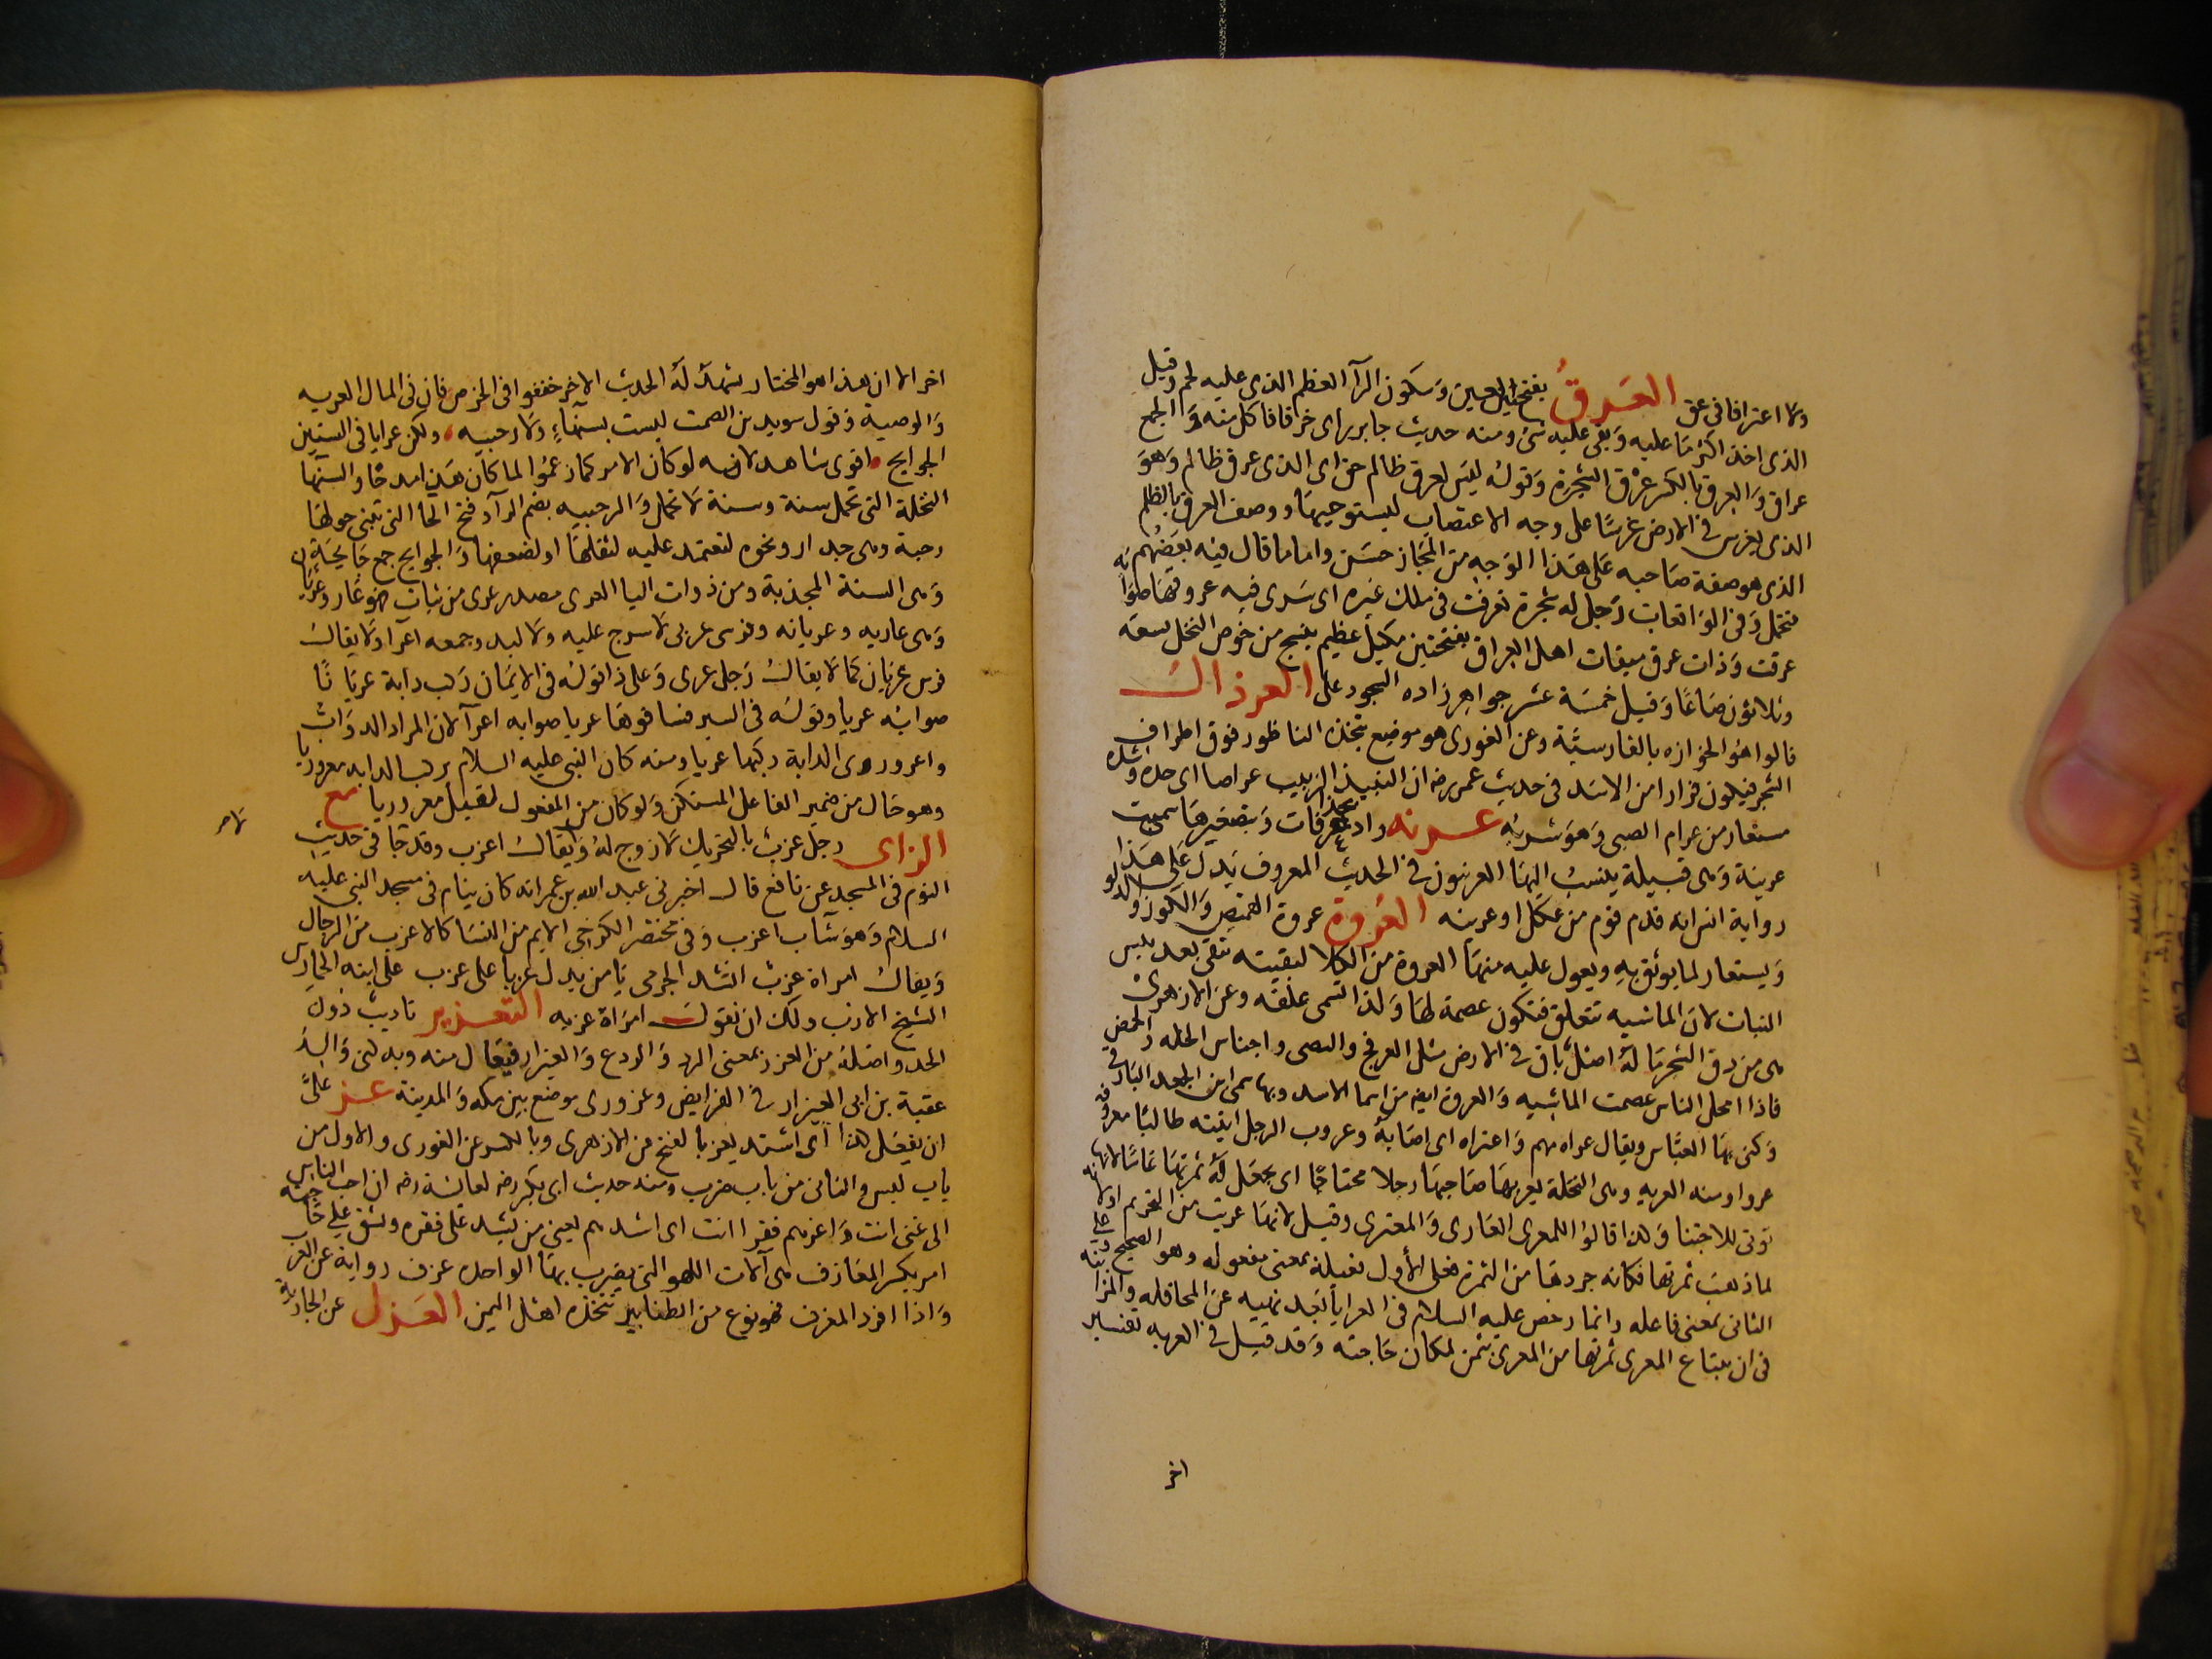 ولا اعترافا في عق العَرقُ بفتح العين وسكون الرآ العظم الذى عليه لحم وقيل
الذى اخذ اكثر ما عليه وبقى عليه شئ ومنه حديث جابر راى خرقا فاكل منه والجمع
عراق والعرق بالكسر عرق الشجرة وقوله ليس لعرق ظالم حق اى الذى عرق ظالم وهو
الذى يغرس في الارض غرسا على وجه الاغتصاب ليستوجبها ووصف العرق بالظلم
الذى هو صفة صاحبه على هذا الوجه من المجاز حسن واما ما قال فيه بعضهم
فتحمل وفى الواقعات رجل له شجرة تعرقت فى ملك غيره اى سرى فيه عروقها صوابه
عرقت وذات عرق ميقات اهل العراق بفتحتين مكيل عظيم ينسج من خوص النخل سعته
وثلاثون صاعا وقيل خمسة عشر جواهر زاده السجود على العرذال
قالوا هو الخوازه بالفارسية وعن الغورى هو موضع يتخذه الناظور فوق اطراف
الشجر فيكون فرارا من الاسد فى حديث عمر رضه ان النبيذ الزبيب عراما اى حده وشده
مستعار من عرام الصبى وهو شرته عرنه واد بحذا عرفات وبتصغيرها سميت
عرينة وهى قبيلة ينسب اليها العرنيون في الحديث المعروف يدل على هذا
رواية انس انه قدم قوم من عكل او عرينه العُروة عروة القميص والكوز والدلو
ويستعار لما يوثق به ويعول عليه منها العروة من الكلا لبقيته تبقى بعد يبس
النبات لان الماشيه تتعلق فتكون عصمة لها ولذا تسمى علقه وعن الازهرى
هى من دق الشجر ما له اصل باق في الارض مثل العرفج والنصى واجناس الخله والحمض
فاذا امحل الناس عصمت الماشيه والعروة ايض من اسما الاسد وبها سمى ابن الجعد البارقى
وكنى بها العباس ويقال عراه هم واعتراه اى اصابه وعروت الرجل اتيته طالبا معروفه
عروا ومنه العريه وهى النخلة يعريها صاحبها رجلا محتاجا اى يجعل له ثمرتها عاما لانها
توتى للاجتنا ولذا قالوا للمعرى العارى والمعترى وقيل لانها عريت من التحريم او لانه
لما ذهب ثمرتها فكانه جردها من الثمرة فعلى الأول فعيلة بمعنى مفعوله وهو الصحيح وعلى
الثانى بمعنى فاعله وانما رخص عليه السلام فى العرايا بعد نهيه عن المحاقله والمزابنه
فى ان يبتاع المعرى ثمرتها من المعرى بتمر لمكان حاجته وقد قيل في العريه تفسير
اخر
اخر الا ان هذا هو المختار يشهد له الحديث الاخر خففوا فى الخرص فان فى المال العريه
والوصية وقول سويد بن الصمت ليست بسنهاء ولا رجبيه ولكن عرايا فى السنين
الجوايح اقوى شاهد لانه لو كان الامر كما زعموا لما كان هذا مدحا والسنها
النخلة التى تحمل سنة وسنة لا تحمل والرجبيه بضم الرآ وفتح الجا التى تبنى حولها
رجبة وهى جدار ونحوه لتعتمد عليه لثقلها او لضعفها والجوايح جمع جايحة
وهى السنة المجدبة ومن ذوات اليا العرى مصدر عرى من ثيابه فهو عار وعريان
وهى عاريه وعريانه وفرس عرى لا سرج عليه ولا لبد وجمعه اعرآ ولا يقال
فرس عريان كما لا يقال رجل عرى وعلى ذا قوله فى الايمان ركب دابة عريانا
صوابه عريا وقوله فى السير فساقوها عريا صوابه اعرآ لان المراد الدواب
واعرورى الدابة ركبها عريا ومنه كان النبى عليه السلام يركب الدابه معروريا
وهو حال من ضمير الفاعل المستكن ولو كان من المفعول لقيل معروريا مع
الزاى رجل عزب بالتحريك لا زوج له ولا يقال اعزب وقد جا فى حديث
النوم فى المسجد عن نافع قال اخبرنى عبد الله بن عمر انه كان ينام فى مسجد النبى عليه
السلام وهو شاب اعزب وفى مختصر الكرخى الايم من النسا كالاعزب من الرجال
ويقال امراة عزب انشد الجرمى يا من يدل عزبا على عزب على ابنة الحمارس
الشيخ الازب ولك ان تقول امراة عزبه التعزير تاديب دون
الحد واصله من العزر بمعنى الرد والردع والعيزار فيعال منه وبه كنى والد
عقبة بن ابى العيزار فى الفرايض وعزورى موضع بين مكه والمدينة عز على
ان يفعل كذا اى اشتد يعز بالفتح عن الازهرى وبالكسر عن الغورى والاول من
باب لبس والثانى من باب ضرب ومنه حديث ابى بكر رضه لعائشة رضه ان احب الناس
الى غنى انت واعزهم فقرا انت اى اشدهم يعنى من يشتد على فقره ويشق على
امر بكسر المعازف هى آلات اللهو التى يضرب بها الواحد عزف رواية عن العرب
واذا افرد المعزف فهو نوع من الطنابير تتخذه اهل اليمن العَزل عن الجارية